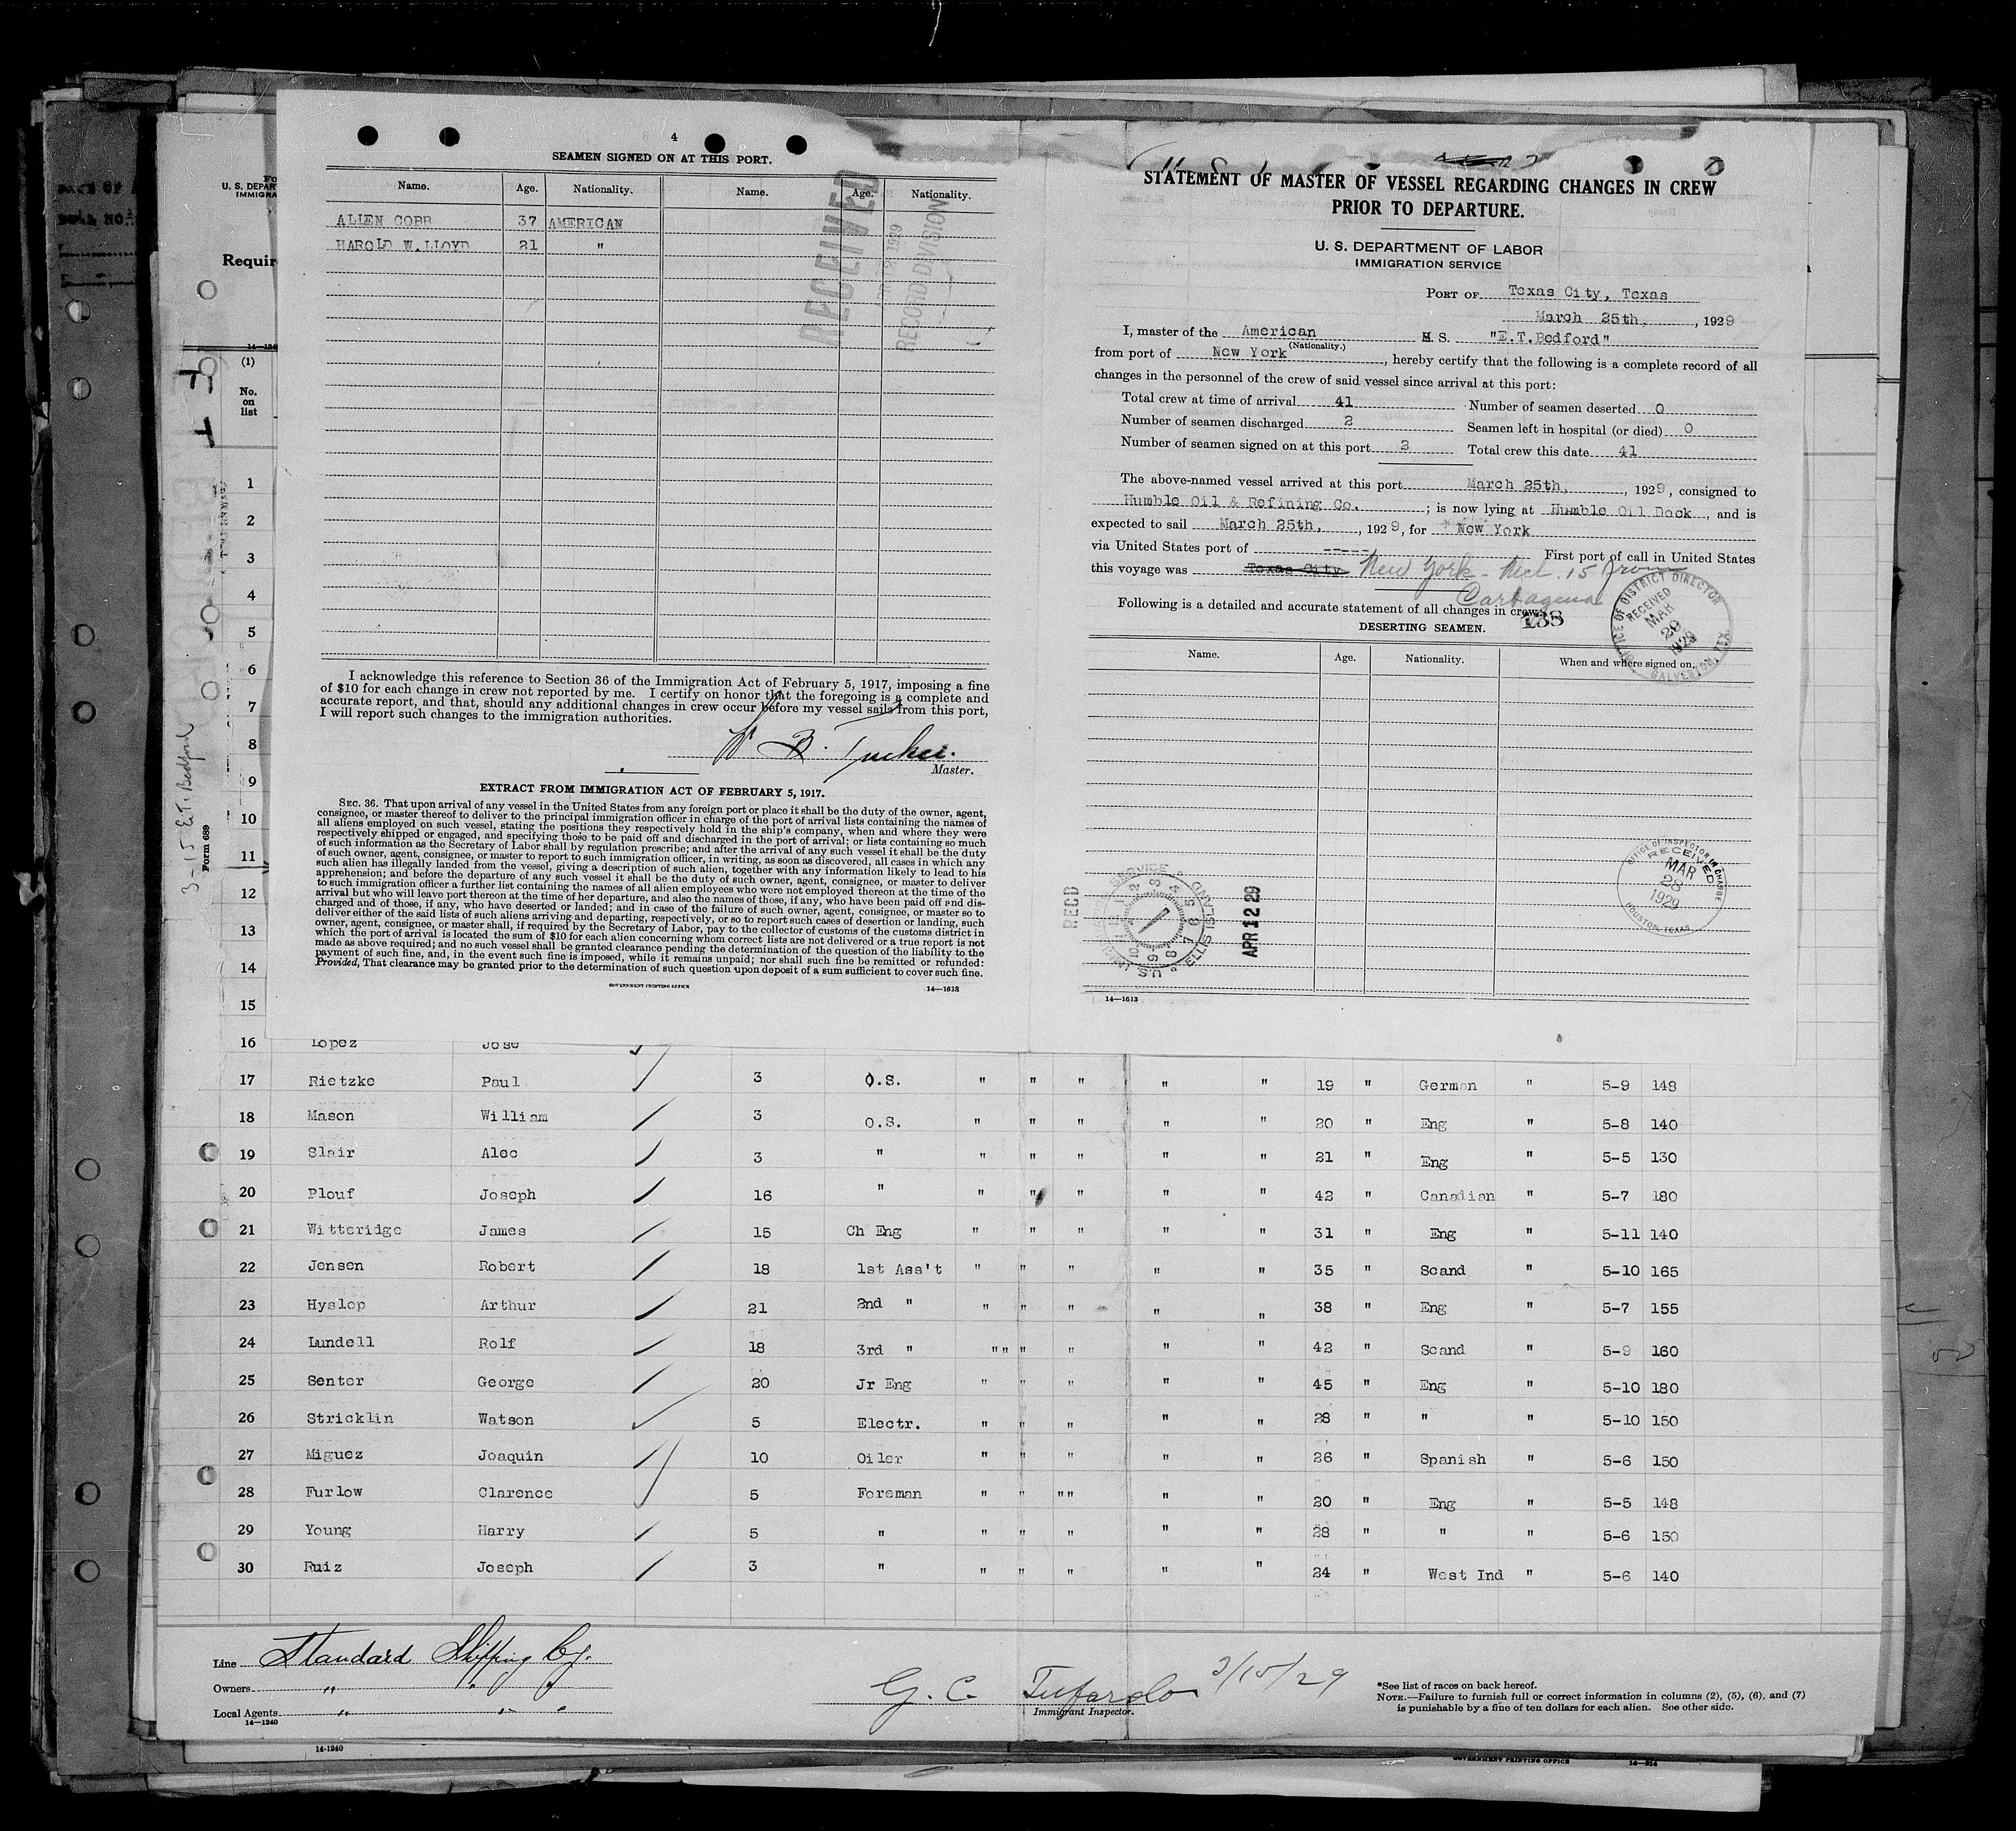 4
SEAMEN SIGNED ON AT THIS PORT.
Name. Age. Nationality. Name. Age. Nationality.
ALIEN COBB 37 AMERICAN
HAROLD W.LLOYD 21 "
RECEIVED
RECORD DIVISION
I acknowledge this reference to Section 36 of the Immigration Act of February 5, 1917, imposing a fine
of $10 for each change in crew not reported by me. I certify on honor that the foregoing is a complete and
accurate report, and that, should any additional changes in crew occur before my vessel sails from this port,
I will report such changes to the immigration authorities.
Tucker.
Master.
EXTRACT FROM IMMIGRATION ACT OF FEBRUARY 5, 1917.
SEC. 36. That upon arrival of any vessel in the United States from any foreign port or place it shall be the duty of the owner, agent,
consignee, or master thereof to deliver to the principal immigration officer in charge of the port of arrival lists containing the names of
all aliens employed on such vessel, stating the positions they respectively hold in the ship's company, when and where they were
respectively shipped or engaged, and specifying those to be paid off and discharged in the port of arrival; or lists containing so much
of such information as the Secretary of Labor shall by regulation prescribe; and after the arrival of any such vessel it shall be the duty
of such owner, agent, consignee, or master to report to such immigration officer, in writing, as soon as discovered, all cases in which any
such alien has illegally landed from the vessel, giving a description of such alien, together with any information likely to lead to his
apprehension; and before the departure of any such vessel it shall be the duty of such owner, agent, consignee, or master to deliver
to such immigration officer a further list containing the names of all alien employees who were not employed thereon at the time of the
arrival but who will leave port thereon at the time of her departure, and also the names of those, if any, who have been paid off and dis-
charged and of those, if any, who have deserted or landed; and in case of the failure of such owner, agent, consignee, or master so to
deliver either of the said lists of such aliens arriving and departing, respectively, or so to report such cases of desertion or landing, such
owner, agent, consignee, or master shall, if required by the Secretary of Labor, pay to the collector of customs of the customs district in
which the port of arrival is located the sum of $10 for each alien concerning whom correct lists are not delivered or a true report is not
made as above required; and no such vessel shall be granted clearance pending the determination of the question of the liability to the
payment of such fine, and, in the event such fine is imposed, while it remains unpaid; nor shall such fine be remitted or refunded:
Provided, That clearance may be granted prior to the determination of such question upon deposit of a sum sufficient to cover such fine.
GOVERNMENT PRINTING OFFICE 14—1613
STATEMENT OF MASTER OF VESSEL REGARDING CHANGES IN CREW
PRIOR TO DEPARTURE.
U. S. DEPARTMENT OF LABOR
IMMIGRATION SERVICE
PORT OF Texas City, Texas
March 25th, , 1929
I, master of the American S. "E.T.Bedford"
(Nationality.)
from port of New York , hereby certify that the following is a complete record of all
changes in the personnel of the crew of said vessel since arrival at this port:
Total crew at time of arrival 41 Number of seamen deserted 0
Number of seamen discharged 2 Seamen left in hospital (or died) 0
Number of seamen signed on at this port 2 Total crew this date 41
The above-named vessel arrived at this port March 25th, , 1929, consigned to
Humble Oil & Refining Co. ; is now lying at Humble Oil Dock , and is
expected to sail March 25th, , 1929, for New York
via United States port of ----- First port of call in United States
this voyage was Texas City New York - Mch. 15 from
Cartagena
Following is a detailed and accurate statement of all changes in crew:
138
DESERTING SEAMEN.
OFFICE OF DISTRICT DIRECTOR
RECEIVED
MAR
29
1929
GALVESTON, TEX
Name. Age. Nationality. When and where signed on.
OFFICE OF INSPECTOR IN CHARGE
RECEIVED
MAR
28
1929
HOUSTON, TEXAS
REC'D
U.S. SERVICE ELLIS ISLAND
APR 12 29
14—1613
U. S. DEPAR
IMMIGRA
Requir
(1)
No.
on
list
3-15-E.T. Bedford
Form 689
1
2
3
4
5
6
7
8
9
10
11
12
13
14
15
16 Lopez Jose
17 Rietzke Paul 3 O.S. " " " " " 19 " German " 5-9 148
18 Mason William 3 O.S. " " " " " 20 " Eng " 5-8 140
19 Slair Alec 3 " " " " " " 21 " Eng " 5-5 130
20 Plouf Joseph 16 " " " " " " 42 " Canadian " 5-7 180
21 Witteridge James 15 Ch Eng " " " " " 31 " Eng " 5-11 140
22 Jensen Robert 18 1st Ass't " " " " " 35 " Scand " 5-10 165
23 Hyslop Arthur 21 2nd " " " " " " 38 " Eng " 5-7 155
24 Lundell Rolf 18 3rd " "" " " " " 42 " Scand " 5-9 160
25 Senter George 20 Jr Eng " " " " " 45 " Eng " 5-10 180
26 Stricklin Watson 5 Electr. " " " " " 28 " " " 5-10 150
27 Miguez Joaquin 10 Oiler " " " " " 26 " Spanish " 5-6 150
28 Furlow Clarence 5 Foreman " " "" " " 20 " Eng " 5-5 148
29 Young Harry 5 " " " " " " 28 " " " 5-6 150
30 Ruiz Joseph 3 " " " " " " 24 " West Ind " 5-6 140
Line Standard Shipping Co.
Owners " " "
Local Agents " " "
14—1240
G. C. Tufarolo 3/15/29
Immigrant Inspector.
*See list of races on back hereof.
NOTE.—Failure to furnish full or correct information in columns (2), (5), (6), and (7)
is punishable by a fine of ten dollars for each alien. See other side.
14-1240
GOVERNMENT PRINTING OFFICE